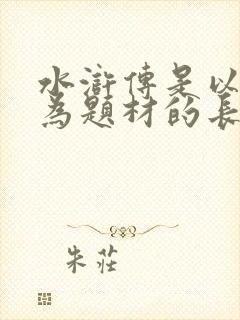 水滸傳是以
為題材的長
朱莊